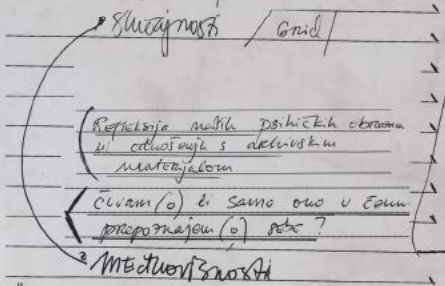 Slučajnosti / Grid
Refleksija naših psihičkih obrazaca
u odnošenju s arhivskim
materijalom
Čuvam(o) li samo ono u čemu
prepoznajem(o) sebe?